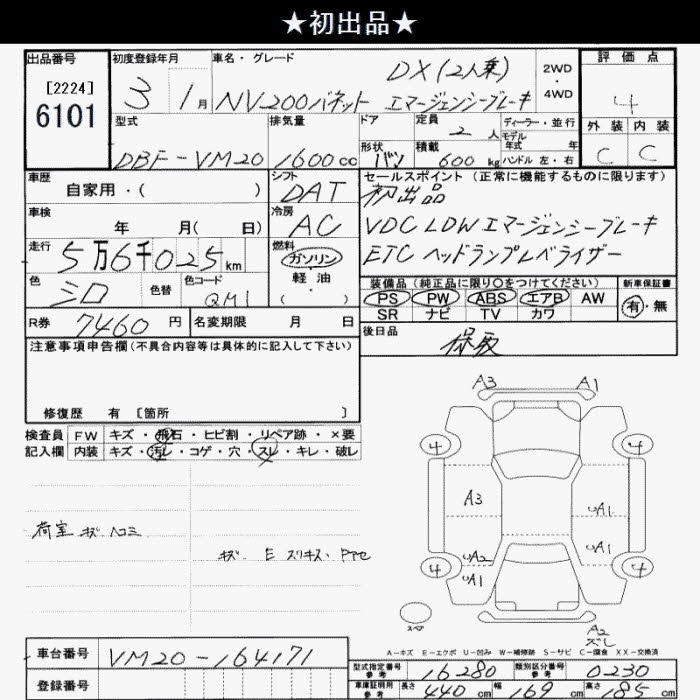 ★初出品★
出品番号 初度登録年月 車名・グレード 評価点
[2224] 6101
3 1月 NV200バネット DX(2人乗) エマージェンシーブレーキ 2WD・4WD 4
型式 排気量 ドア 定員 2人 ディーラー・並行 外装 内装
DBF-VM20 1600cc 形状 バン 積載 600kg モデル年式 年 ハンドル 左・右 C C
車歴 シフト セールスポイント(正常に機能するものに限ります)
自家用・( ) DAT 初出品
車検 冷房 VDC LDW エマージェンシーブレーキ
年 月( 日) AC ETC ヘッドランプレベライザー
走行 燃料
5万6千025km ガソリン
軽油
・( )
色 シロ 色替 色コード QM1
装備品(純正品に限り○をつけてください) 新車保証書
PS PW ABS エアB AW 有・無
SR ナビ TV カワ
R券 7460円 名変期限 月 日
後日品
注意事項申告欄(不具合内容等は具体的に記入して下さい)
修復歴 有 [箇所 ]
検査員 FW キズ・飛石・ヒビ割・リペア跡・×要
記入欄 内装 キズ・汚レ・コゲ・穴・スレ・キレ・破レ
荷室 キズ ヘコミ
キズ E スリキズ・
A3 A1
4 4
A3 UA1
UA2 UA1
4 UA1 4
スペア
A2
ズレ
A-キズ E-エクボ U-凹み W-補修跡 S-サビ C-腐食 XX-交換済
車台番号 VM20-164171
登録番号
型式指定番号 参考 16280 類別区分番号 参考 0230
車庫証明用 参考 長さ 440cm 幅 169cm 高さ 185cm